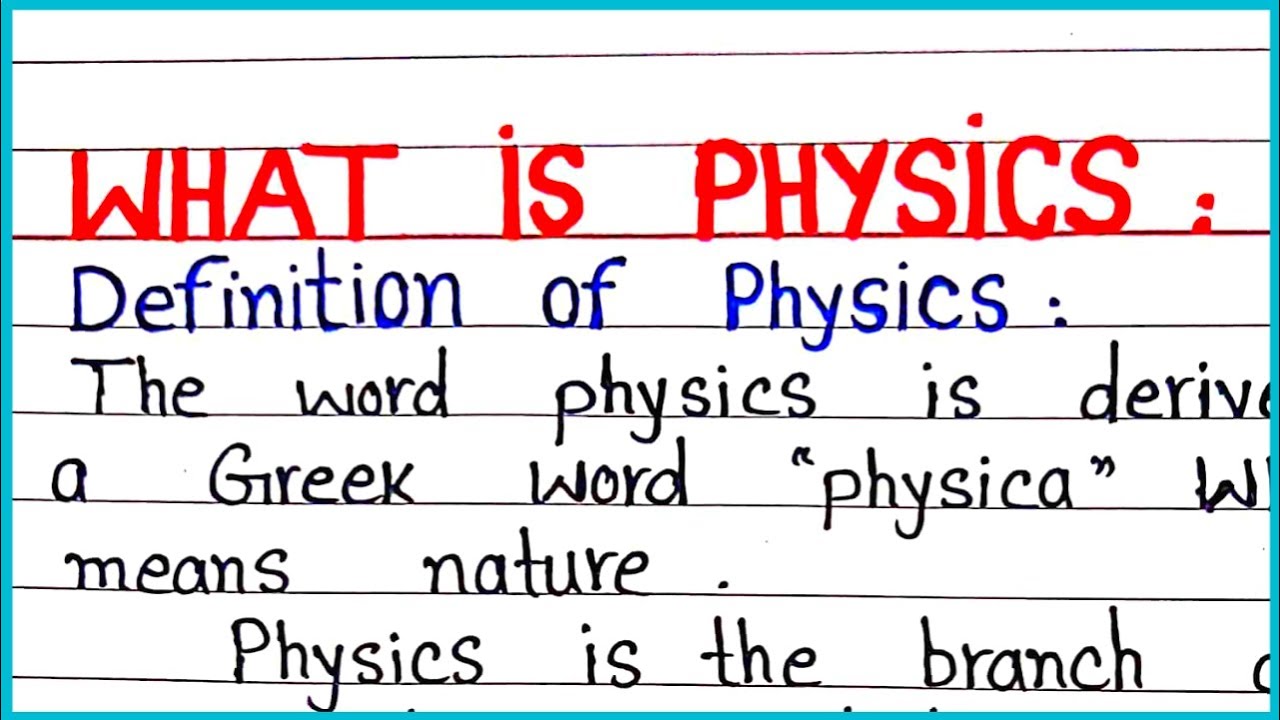 WHAT iS PHYSiCS :
Definition of Physics :
The word physics is derive
a Greek word "physica" wh
means nature .
Physics is the branch